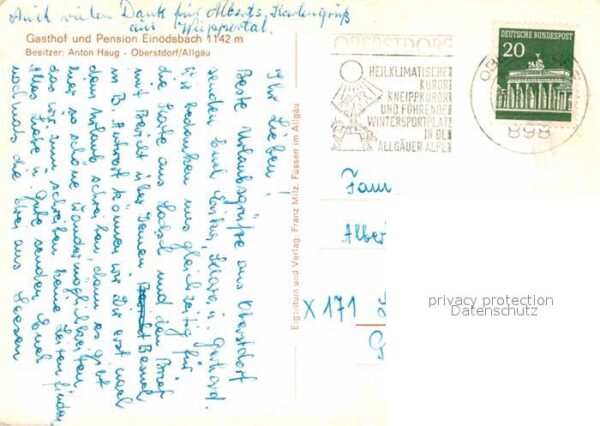 Auch vielen Dank für Alberts Kartengruß
aus Wuppertal.
Gasthof und Pension Einödsbach 1142 m
Besitzer: Anton Haug - Oberstdorf/Allgäu
Ihr Lieben!
Beste Urlaubsgrüße aus Oberstdorf
senden Euch Erika, Klara u. Gerhard.
Wir bedanken uns gleichzeitig für
die Karte aus und den Brief
mit Bericht über Besuch
in B. Antwort können wir Dir erst nach
dem Urlaub schreiben, denn es gibt
hier so schöne Wandermöglichkeiten
das wir zum schreiben keine Zeiten finden
Alles Liebe u. Gute senden Euch
nochmals die Drei aus Seesen
Eigentum und Verlag: Franz Milz, Füssen im Allgäu
OBERSTDORF
HEILKLIMATISCHER
KURORT
KNEIPPKURORT
UND FÜHRENDER
WINTERSPORTPLATZ
IN DEN
ALLGÄUER ALPEN
DEUTSCHE BUNDESPOST
20
898
Fam
Alber
X 171
privacy protection
Datenschutz